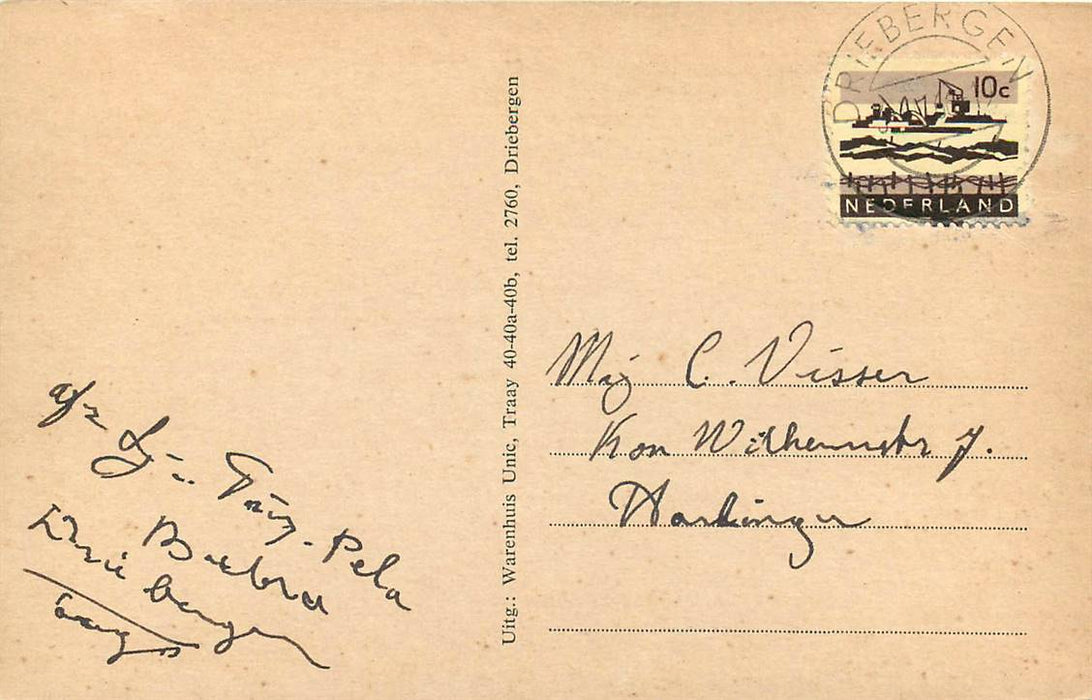 DRIEBERGEN
10c
NEDERLAND
Uitg.: Warenhuis Unic, Traay 40-40a-40b, tel. 2760, Driebergen
Mej C. Visser
Kon Wilhelminastr 7.
Harlingen
afz
Driebergen